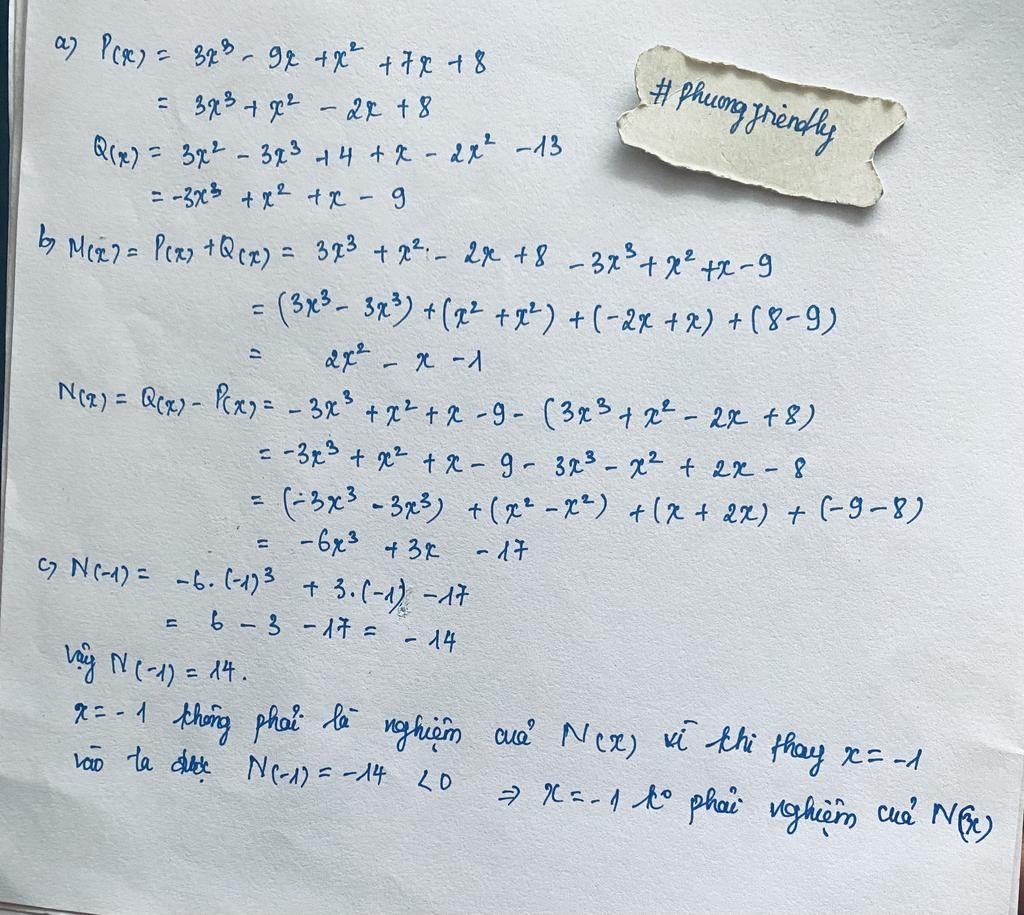 a) P(x) = 3x³ - 9x + x² + 7x + 8
= 3x³ + x² - 2x + 8
#phuongfriendly
Q(x) = 3x² - 3x³ + 4 + x - 2x² - 13
= -3x³ + x² + x - 9
b) M(x) = P(x) + Q(x) = 3x³ + x² - 2x + 8 - 3x³ + x² + x - 9
= (3x³ - 3x³) + (x² + x²) + (-2x + x) + (8 - 9)
= 2x² - x - 1
N(x) = Q(x) - P(x) = -3x³ + x² + x - 9 - (3x³ + x² - 2x + 8)
= -3x³ + x² + x - 9 - 3x³ - x² + 2x - 8
= (-3x³ - 3x³) + (x² - x²) + (x + 2x) + (-9 - 8)
= -6x³ + 3x - 17
c) N(-1) = -6.(-1)³ + 3.(-1) - 17
= 6 - 3 - 17 = -14
Vậy N(-1) = 14.
x = -1 không phải là nghiệm của N(x) vì khi thay x = -1
vào ta được N(-1) = -14 < 0 ⇒ x = -1 k° phải nghiệm của N(x)